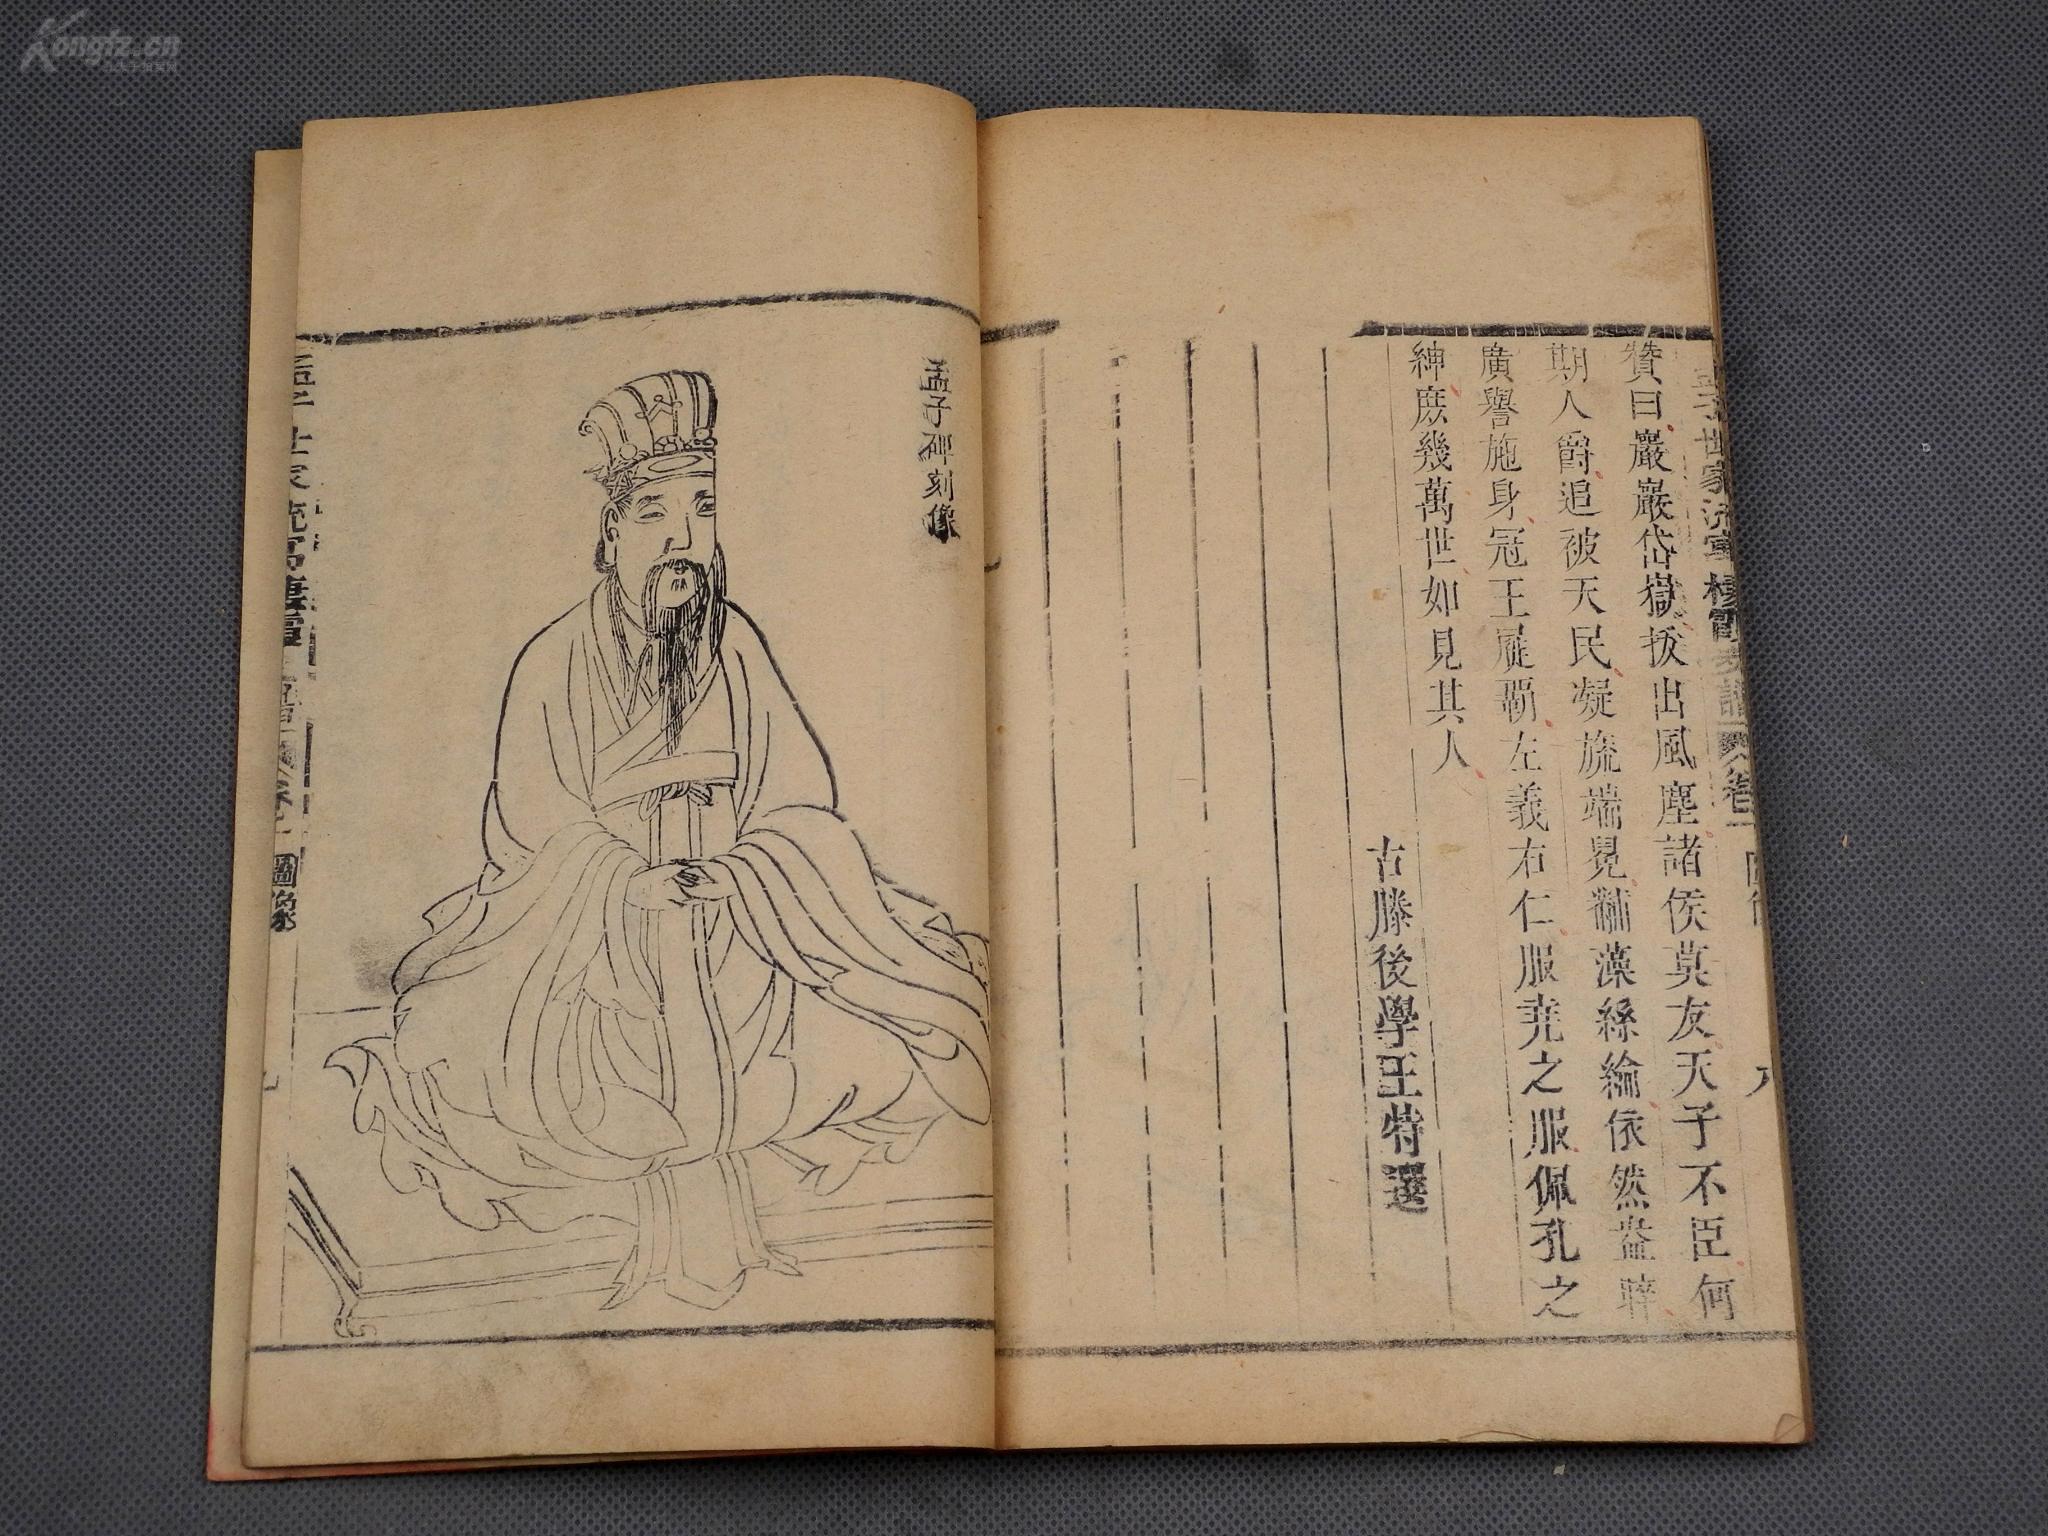 贊曰巖巖岱嶽拔出風塵諸侯莫友天子不臣何
期人爵追被天民凝旒端冕黼藻絲綸依然盎睟
廣譽施身冠王屣覇左義右仁服堯之服佩孔之
紳庶幾萬世如見其人
古滕後學王特選
孟子碑刻像
孟子世家流寓
卷一
圖像
孟子世家流寓
卷一
Kongfz.cn